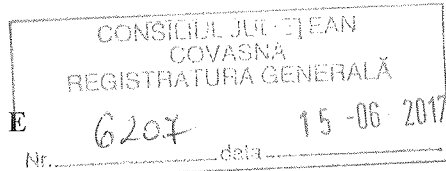 CONSILIUL JUDEȚEAN
COVASNA
REGISTRATURA GENERALĂ
E
6207 15 -06 2017
Nr. data